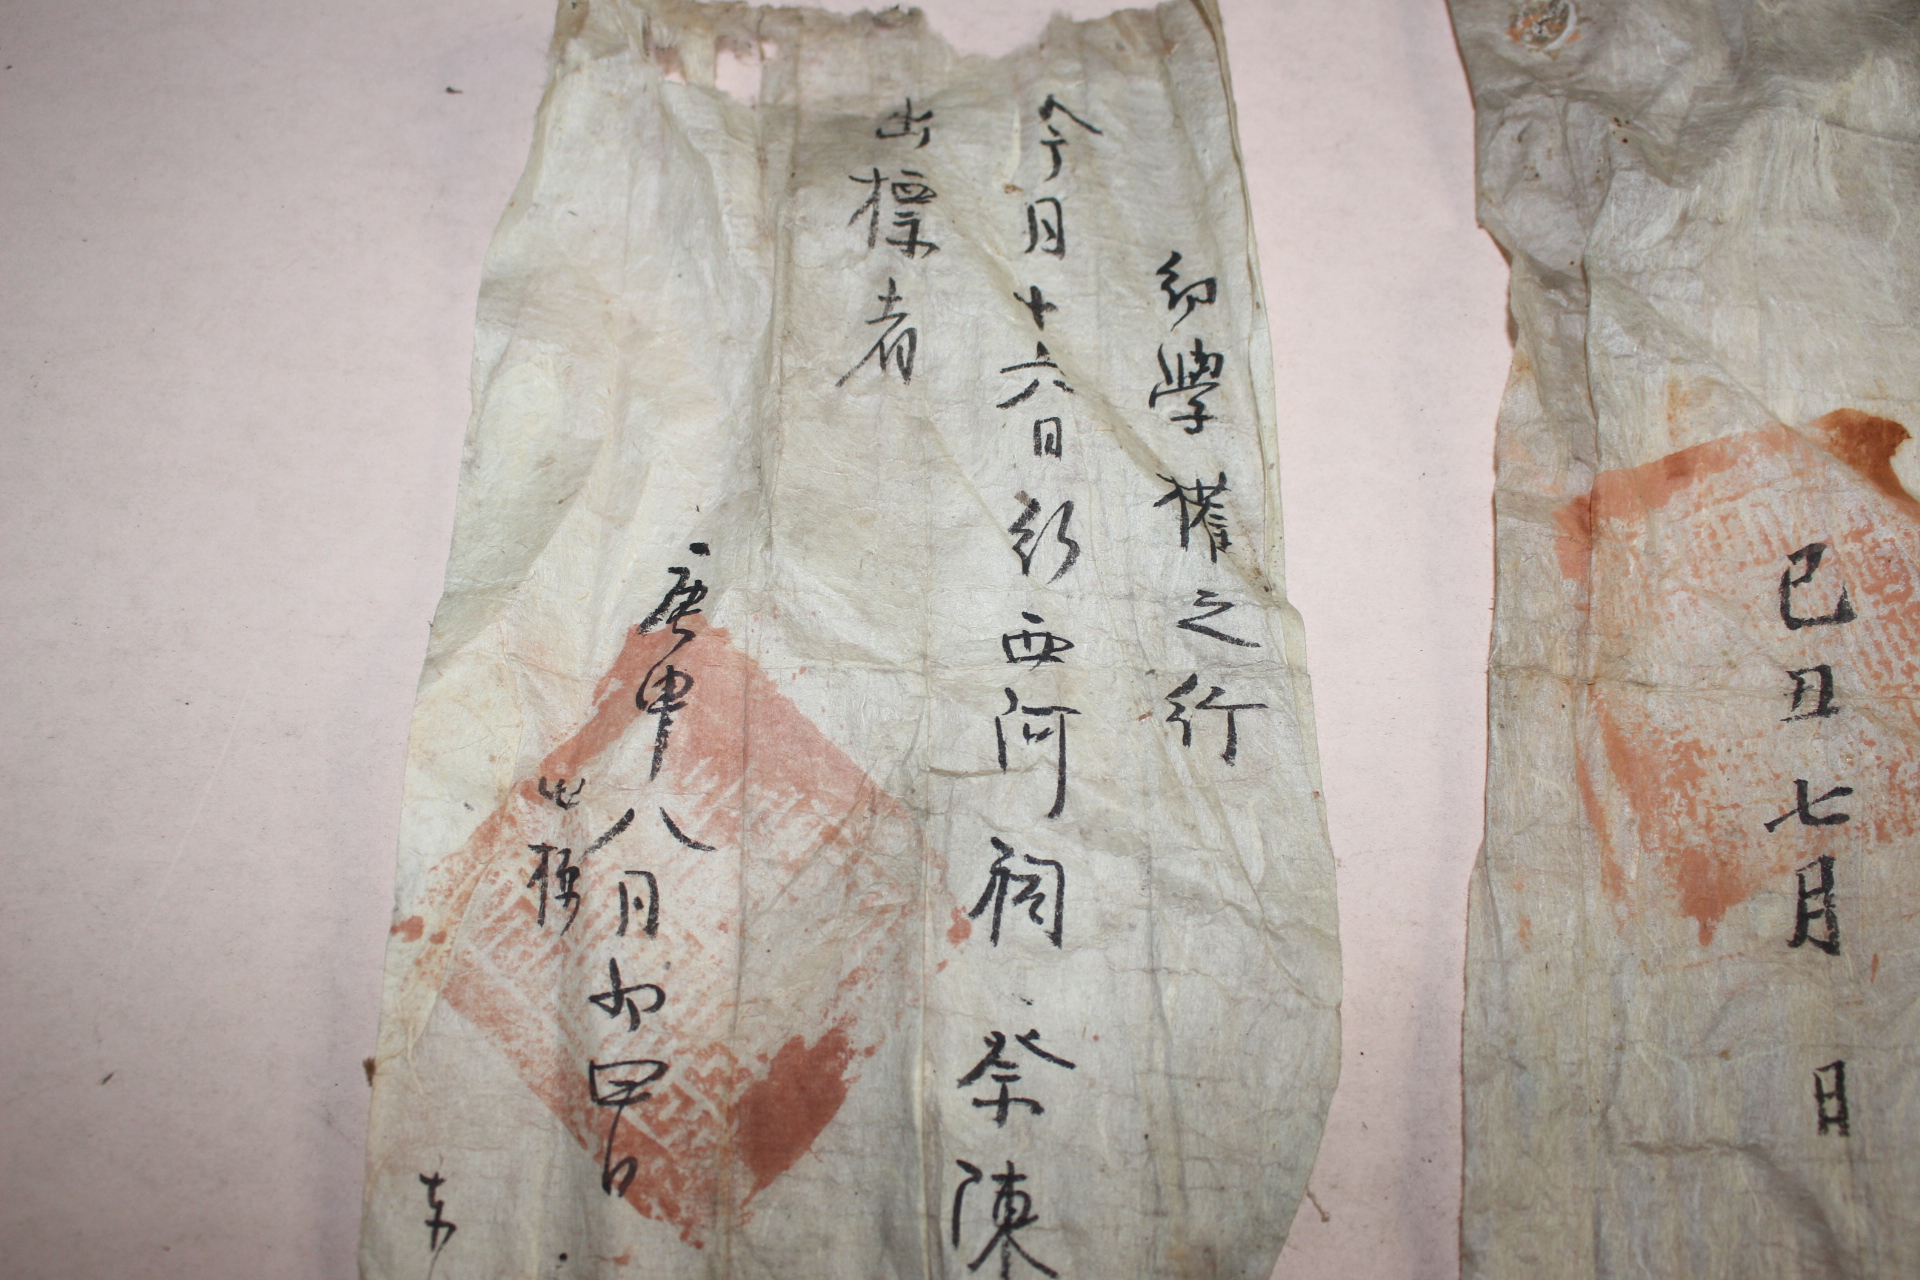 己丑七月 日
幼學 權之行
今月十六日行西河祠 祭陳
出標者
庚申八月初四日
出標